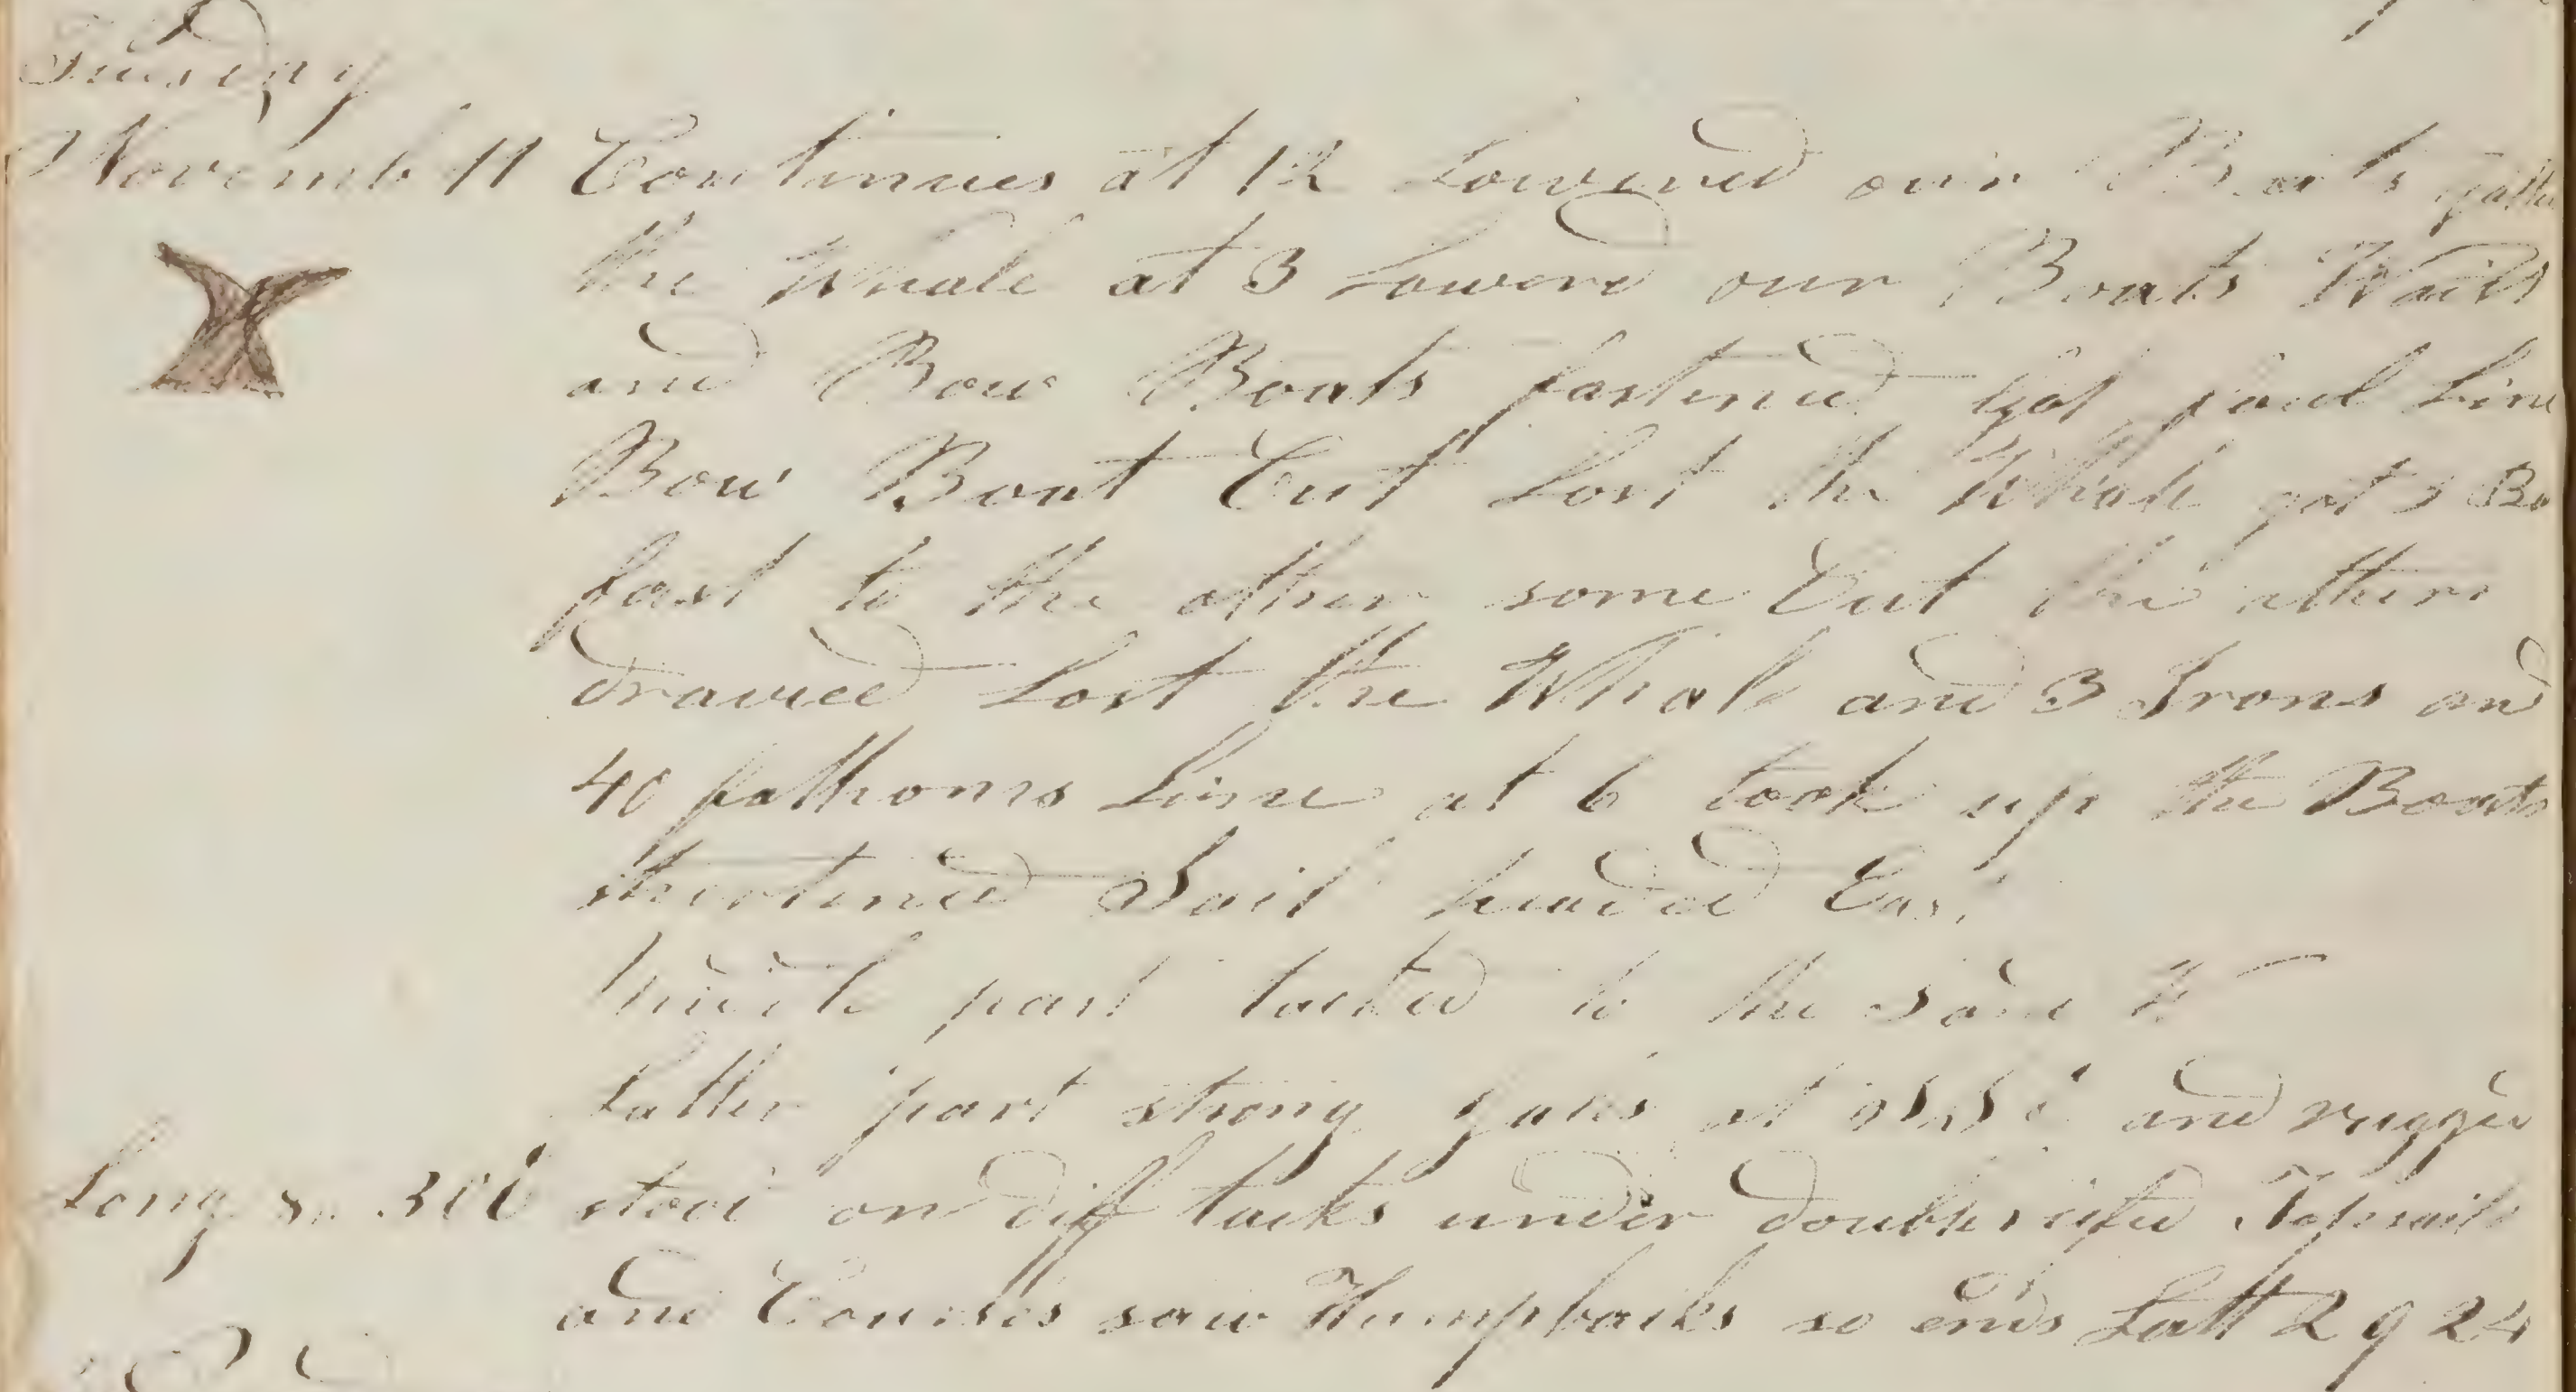 Tuesday
Novemb 11 Continues at 12 Lowered our Boats
the Whale at 3 Lowerd our Boats Waist
and Bow Boats fastened got foul Line
Bow Boat Cut Lost the Whale got 3 Bo
fast to the other some Cut the others
drawed Lost the Whale and 3 Irons and
40 fathoms Line at 6 took up the Boats
shortened Sail headed East
Middle part tacted to the
Latter part strong gales at and rugged
Long on diff tacks under double reefed Topsails
and Courses saw Humpbacks so ends Latt 29 24